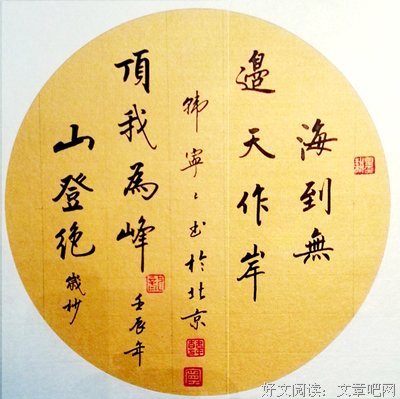 海到無
邊天作岸
山登絕
頂我為峰
壬辰年
歲杪
韓寧〻书於北京
好文阅读：文章吧网